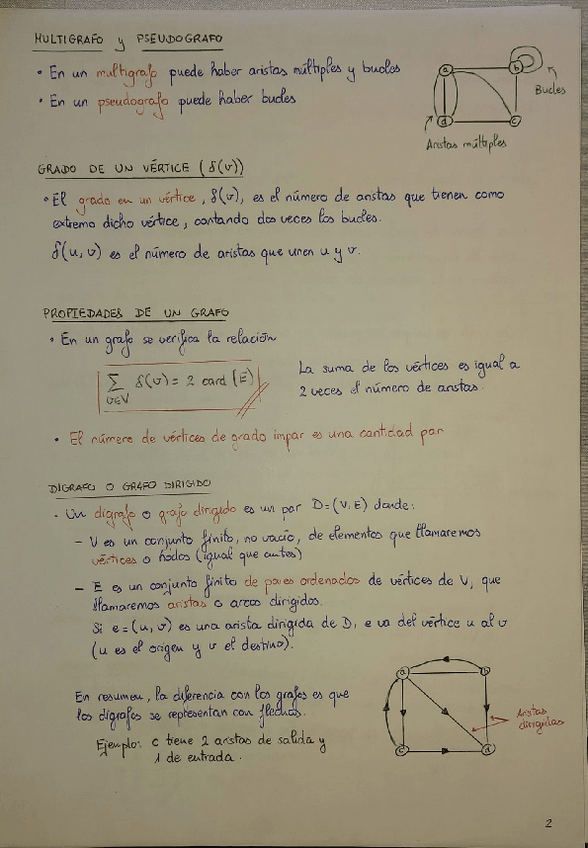 MULTIGRAFO y PSEUDOGRAFO
• En un multigrafo puede haber aristas múltiples y bucles
• En un pseudografo puede haber bucles
a
b
d
c
Bucles
Aristas múltiples
GRADO DE UN VÉRTICE (δ(v))
• El grado en un vértice, δ(v), es el número de aristas que tienen como
extremo dicho vértice, contando dos veces los bucles.
δ(u, v) es el número de aristas que unen u y v.
PROPIEDADES DE UN GRAFO
• En un grafo se verifica la relación
∑ δ(v) = 2 card (E)
v∈V
La suma de los vértices es igual a
2 veces el número de aristas.
• El número de vértices de grado impar es una cantidad par
DIGRAFO O GRAFO DIRIGIDO
- Un digrafo o grafo dirigido es un par D=(V,E) donde:
- V es un conjunto finito, no vacío, de elementos que llamaremos
vértices o nodos (igual que antes)
- E es un conjunto finito de pares ordenados de vértices de V, que
llamaremos aristas o arcos dirigidos.
Si e=(u,v) es una arista dirigida de D, e va del vértice u al v
(u es el origen y v el destino).
En resumen, la diferencia con los grafos es que
los digrafos se representan con flechas.
Ejemplo: c tiene 2 aristas de salida y
1 de entrada.
a
b
c
d
Aristas
dirigidas
2